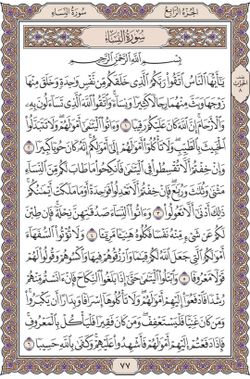 سُورَةُ النِّسَاءِ الجُزءُ الرَّابِعُ
سُورَةُ النِّسَاءِ
بِسْمِ اللَّهِ الرَّحْمَٰنِ الرَّحِيمِ
يَٰٓأَيُّهَا ٱلنَّاسُ ٱتَّقُوا۟ رَبَّكُمُ ٱلَّذِى خَلَقَكُم مِّن نَّفْسٍ وَٰحِدَةٍ وَخَلَقَ مِنْهَا
زَوْجَهَا وَبَثَّ مِنْهُمَا رِجَالًا كَثِيرًا وَنِسَآءً وَٱتَّقُوا۟ ٱللَّهَ ٱلَّذِى تَسَآءَلُونَ بِهِۦ
وَٱلْأَرْحَامَ إِنَّ ٱللَّهَ كَانَ عَلَيْكُمْ رَقِيبًا ١ وَءَاتُوا۟ ٱلْيَتَٰمَىٰٓ أَمْوَٰلَهُمْ وَلَا تَتَبَدَّلُوا۟
ٱلْخَبِيثَ بِٱلطَّيِّبِ وَلَا تَأْكُلُوٓا۟ أَمْوَٰلَهُمْ إِلَىٰٓ أَمْوَٰلِكُمْ إِنَّهُۥ كَانَ حُوبًا كَبِيرًا ٢
وَإِنْ خِفْتُمْ أَلَّا تُقْسِطُوا۟ فِى ٱلْيَتَٰمَىٰ فَٱنكِحُوا۟ مَا طَابَ لَكُم مِّنَ ٱلنِّسَآءِ
مَثْنَىٰ وَثُلَٰثَ وَرُبَٰعَ فَإِنْ خِفْتُمْ أَلَّا تَعْدِلُوا۟ فَوَٰحِدَةً أَوْ مَا مَلَكَتْ أَيْمَٰنُكُمْ
ذَٰلِكَ أَدْنَىٰٓ أَلَّا تَعُولُوا۟ ٣ وَءَاتُوا۟ ٱلنِّسَآءَ صَدُقَٰتِهِنَّ نِحْلَةً فَإِن طِبْنَ
لَكُمْ عَن شَىْءٍ مِّنْهُ نَفْسًا فَكُلُوهُ هَنِيٓـًٔا مَّرِيٓـًٔا ٤ وَلَا تُؤْتُوا۟ ٱلسُّفَهَآءَ
أَمْوَٰلَكُمُ ٱلَّتِى جَعَلَ ٱللَّهُ لَكُمْ قِيَٰمًا وَٱرْزُقُوهُمْ فِيهَا وَٱكْسُوهُمْ وَقُولُوا۟ لَهُمْ
قَوْلًا مَّعْرُوفًا ٥ وَٱبْتَلُوا۟ ٱلْيَتَٰمَىٰ حَتَّىٰٓ إِذَا بَلَغُوا۟ ٱلنِّكَاحَ فَإِنْ ءَانَسْتُم مِّنْهُمْ
رُشْدًا فَٱدْفَعُوٓا۟ إِلَيْهِمْ أَمْوَٰلَهُمْ وَلَا تَأْكُلُوهَآ إِسْرَافًا وَبِدَارًا أَن يَكْبَرُوا۟
وَمَن كَانَ غَنِيًّا فَلْيَسْتَعْفِفْ وَمَن كَانَ فَقِيرًا فَلْيَأْكُلْ بِٱلْمَعْرُوفِ
فَإِذَا دَفَعْتُمْ إِلَيْهِمْ أَمْوَٰلَهُمْ فَأَشْهِدُوا۟ عَلَيْهِمْ وَكَفَىٰ بِٱللَّهِ حَسِيبًا ٦
٧٧